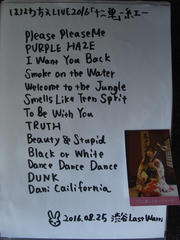 はなわちえLIVE2016「
Please Please Me
PURPLE HAZE
I Want You Back
Smoke on the Water
Welcome to the Jungle
Smells Like Teen Spirit
To Be With You
TRUTH
Beauty & Stupid
Black or White
Dance Dance Dance
DUNK
Dani California
2016.08.25 渋谷 Last Waltz